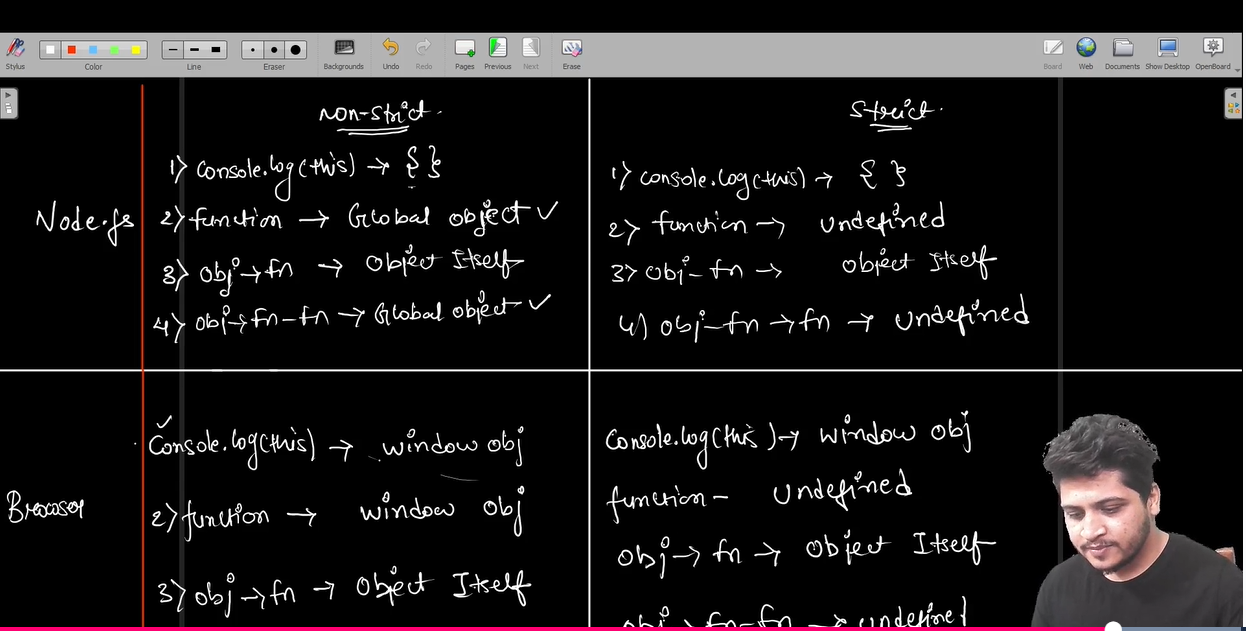 Stylus
Color
Line
Eraser
Backgrounds
Undo
Redo
Pages
Previous
Next
Erase
Board
Web
Documents
Show Desktop
OpenBoard
Non-Strict
Strict
Node.js
1) console.log(this) → { }
2) function → Global object ✓
3) obj → fn → object Itself
4) obj → fn - fn → Global object ✓
1) console.log(this) → { }
2) function → undefined
3) obj - fn → object Itself
4) obj - fn → fn → undefined
Browser
✓
Console.log(this) → window obj
2) function → window obj
3) obj → fn → Object Itself
console.log(this) → window obj
function - undefined
obj → fn → Object Itself
obj → fn - fn → undefined